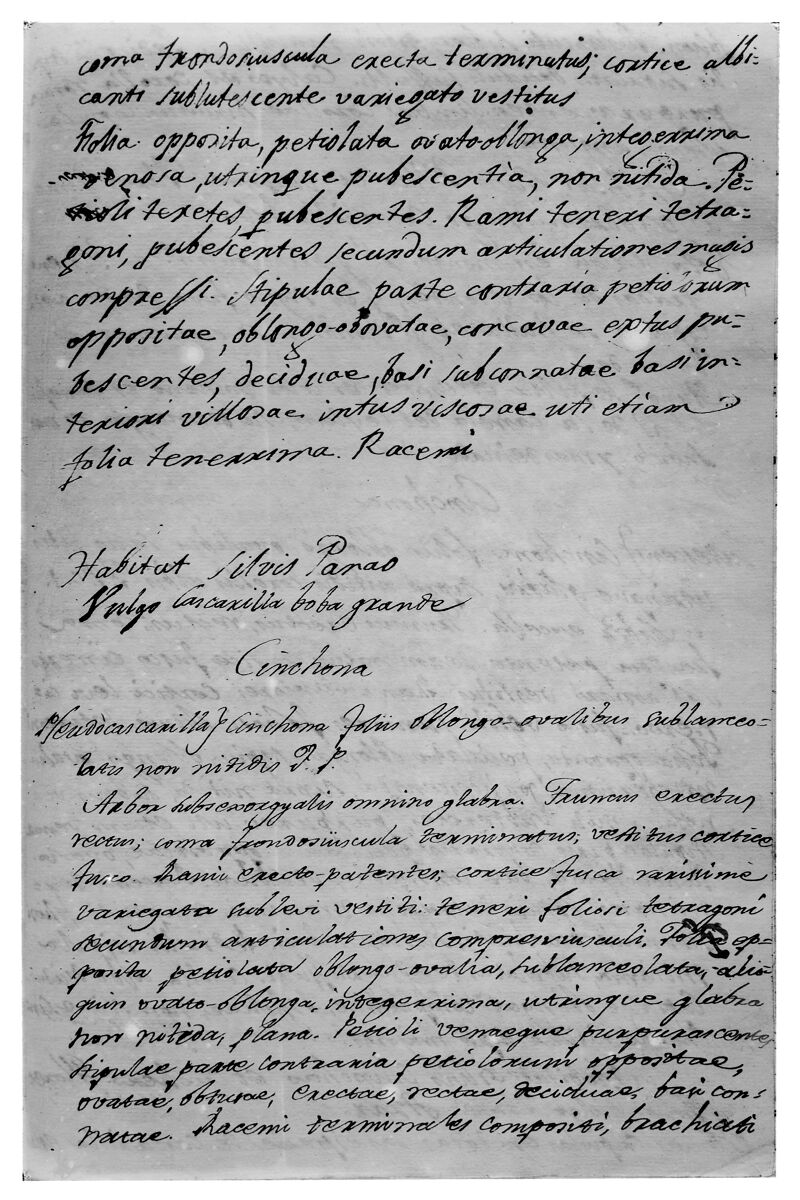 coma frondosiuscula erecta terminatus; cortice albi-
canti sublutescente variegato vestitus
Folia opposita, petiolata ovato-oblonga, integerrima
venosa, utrinque pubescentia, non nitida. Pe-
tioli teretes, pubescentes. Rami teneri tetra-
goni, pubescentes secundum articulationes magis
compressi. Stipulae parte contraria petiolorum
oppositae, oblongo-obovatae, concavae extus pu-
bescentes, deciduae, basi subconnatae basi in-
teriori villosae intus viscosae uti etiam
folia tenerrima. Racemi
Habitat silvis Panao
Vulgo Cascarilla boba grande
Cinchona
Pseudocascarilla} Cinchona foliis oblongo-ovalibus sublanceo-
latis non nitidis F. P.
Arbor subsexorgyalis omnino glabra. Truncus erectus
rectus; coma frondosiuscula terminatus; vestitus cortice
fusco. Rami erecto-patentes; cortice fusca rarissime
variegata sublevi vestiti: teneri foliosi tetragoni
secundum articulationes compressiusculi. Folia op-
posita petiolata oblongo-ovalia, sublanceolata, alio-
quin ovato-oblonga, integerrima, utrinque glabra
non nitida, plana. Petioli venaeque purpurascentes
Stipulae parte contraria petiolorum oppositae,
ovatae, obtusae, erectae, rectae, deciduae, basi con-
natae. Racemi terminales compositi, brachiati